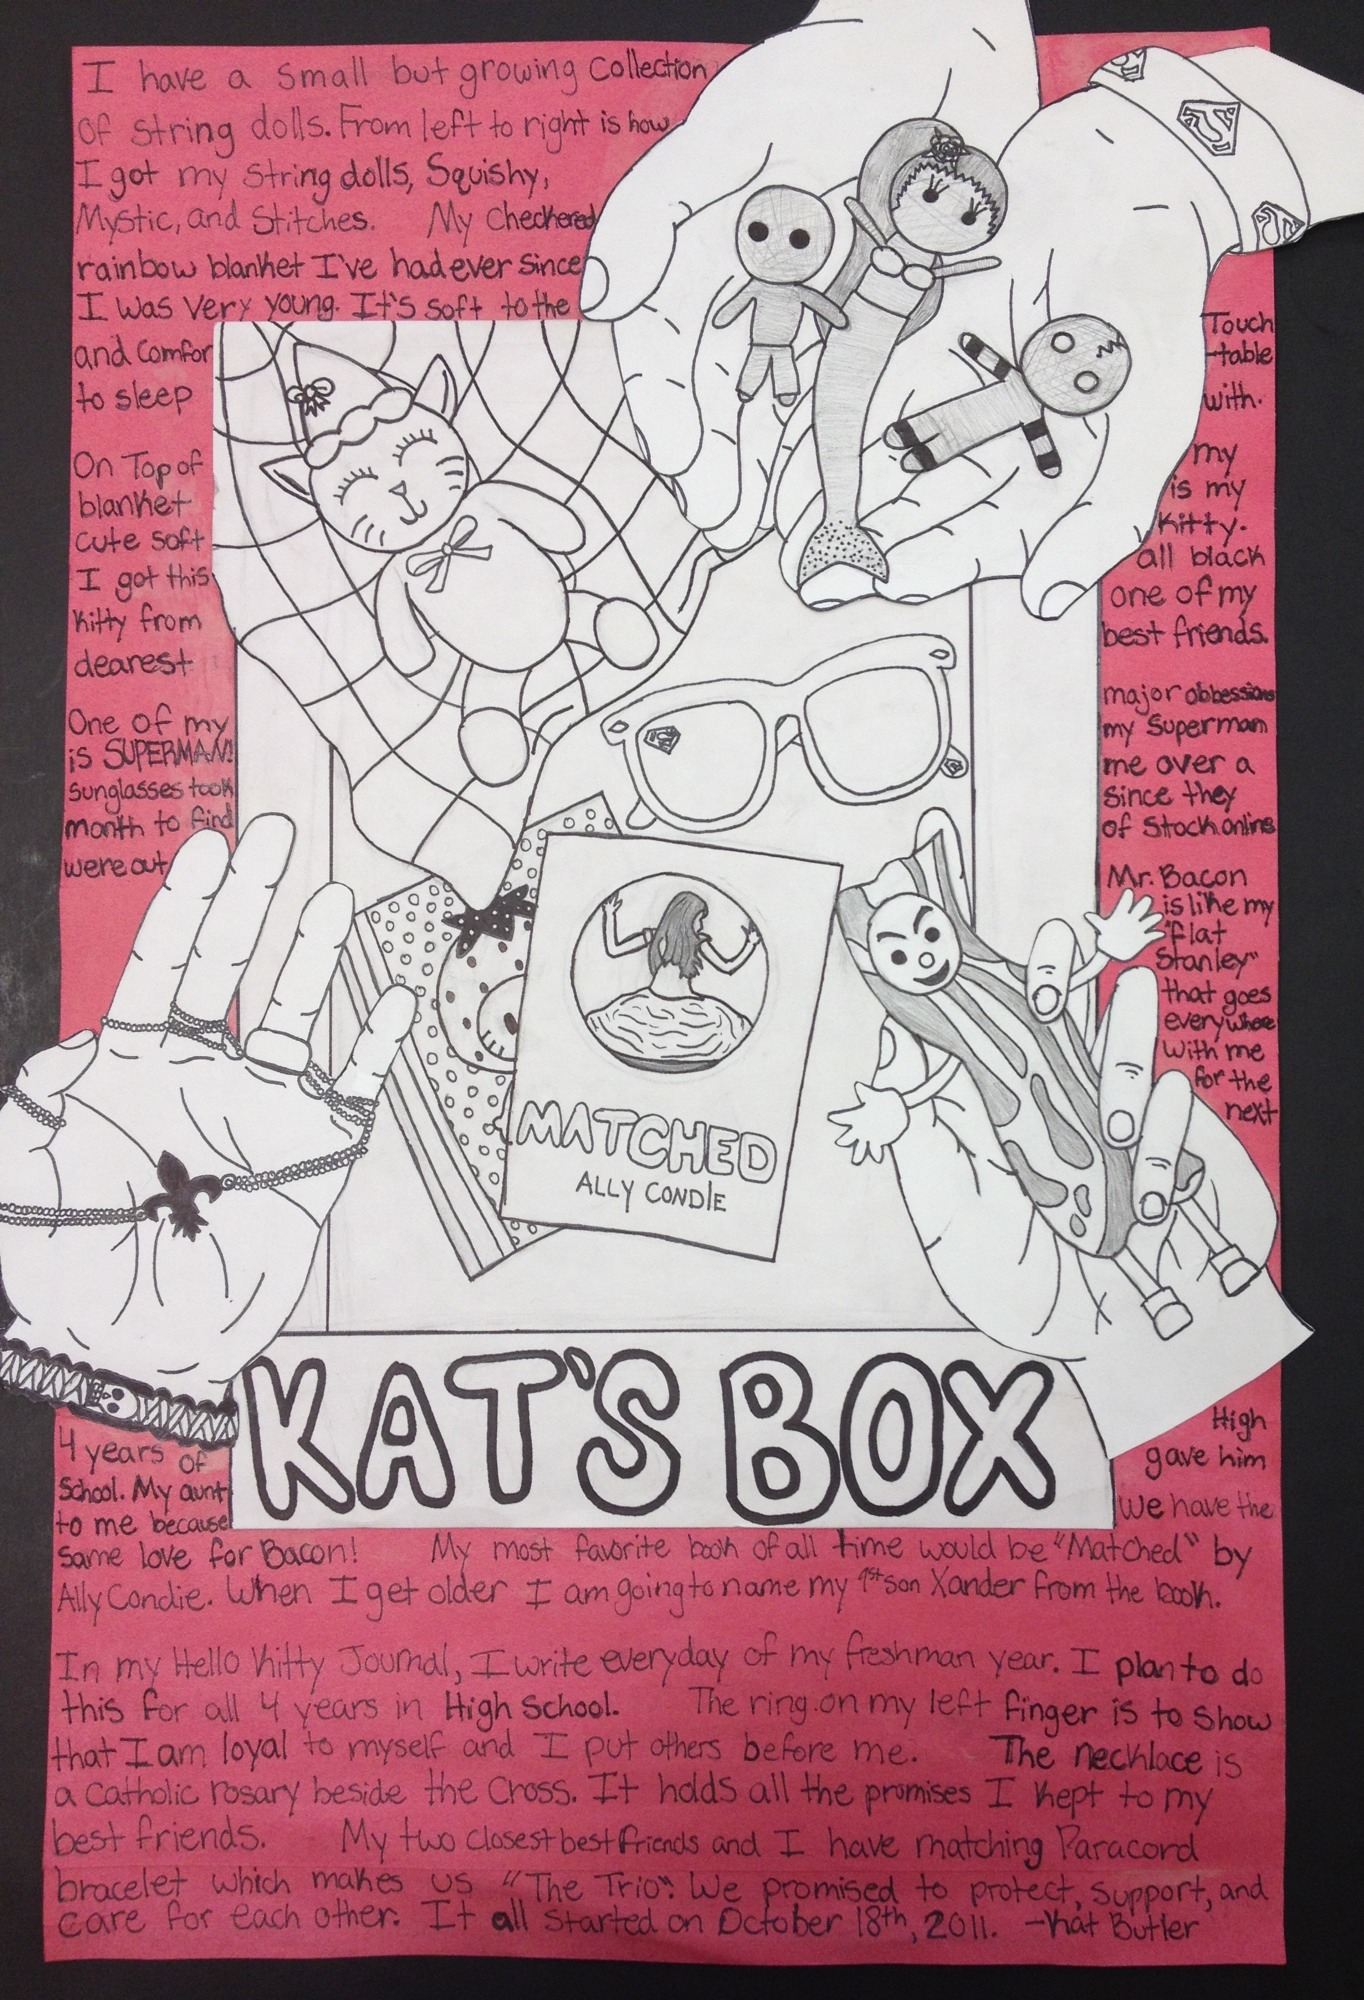 I have a small but growing collection
of string dolls. From left to right is how
I got my string dolls, Squishy,
Mystic, and Stitches. My checkered
rainbow blanket I've had ever since
I was very young. It's soft to the Touch
and comfor -table
to sleep with.
On Top of my
blanket is my
cute soft Kitty.
I got this all black
Kitty from one of my
dearest best friends.
One of my major obbessions
is SUPERMAN! my Superman
sunglasses took me over a
month to find since they
were out of stock online
Mr. Bacon
is like my
"flat
Stanley"
that goes
everywhere
with me
for the
next
4 years of High
School. My aunt gave him
to me because We have the
same love for Bacon! My most favorite book of all time would be "Matched" by
Ally Condie. When I get older I am going to name my 1st son Xander from the book.
In my Hello Kitty Journal, I write everyday of my freshman year. I plan to do
this for all 4 years in High School. The ring on my left finger is to show
that I am loyal to myself and I put others before me. The necklace is
a Catholic rosary beside the Cross. It holds all the promises I kept to my
best friends. My two closest best friends and I have matching Paracord
bracelet which makes us "The Trio". We promised to protect, support, and
care for each other. It all started on October 18th, 2011. -Kat Butler
MATCHED
ALLY CONDIE
KAT'S BOX
S